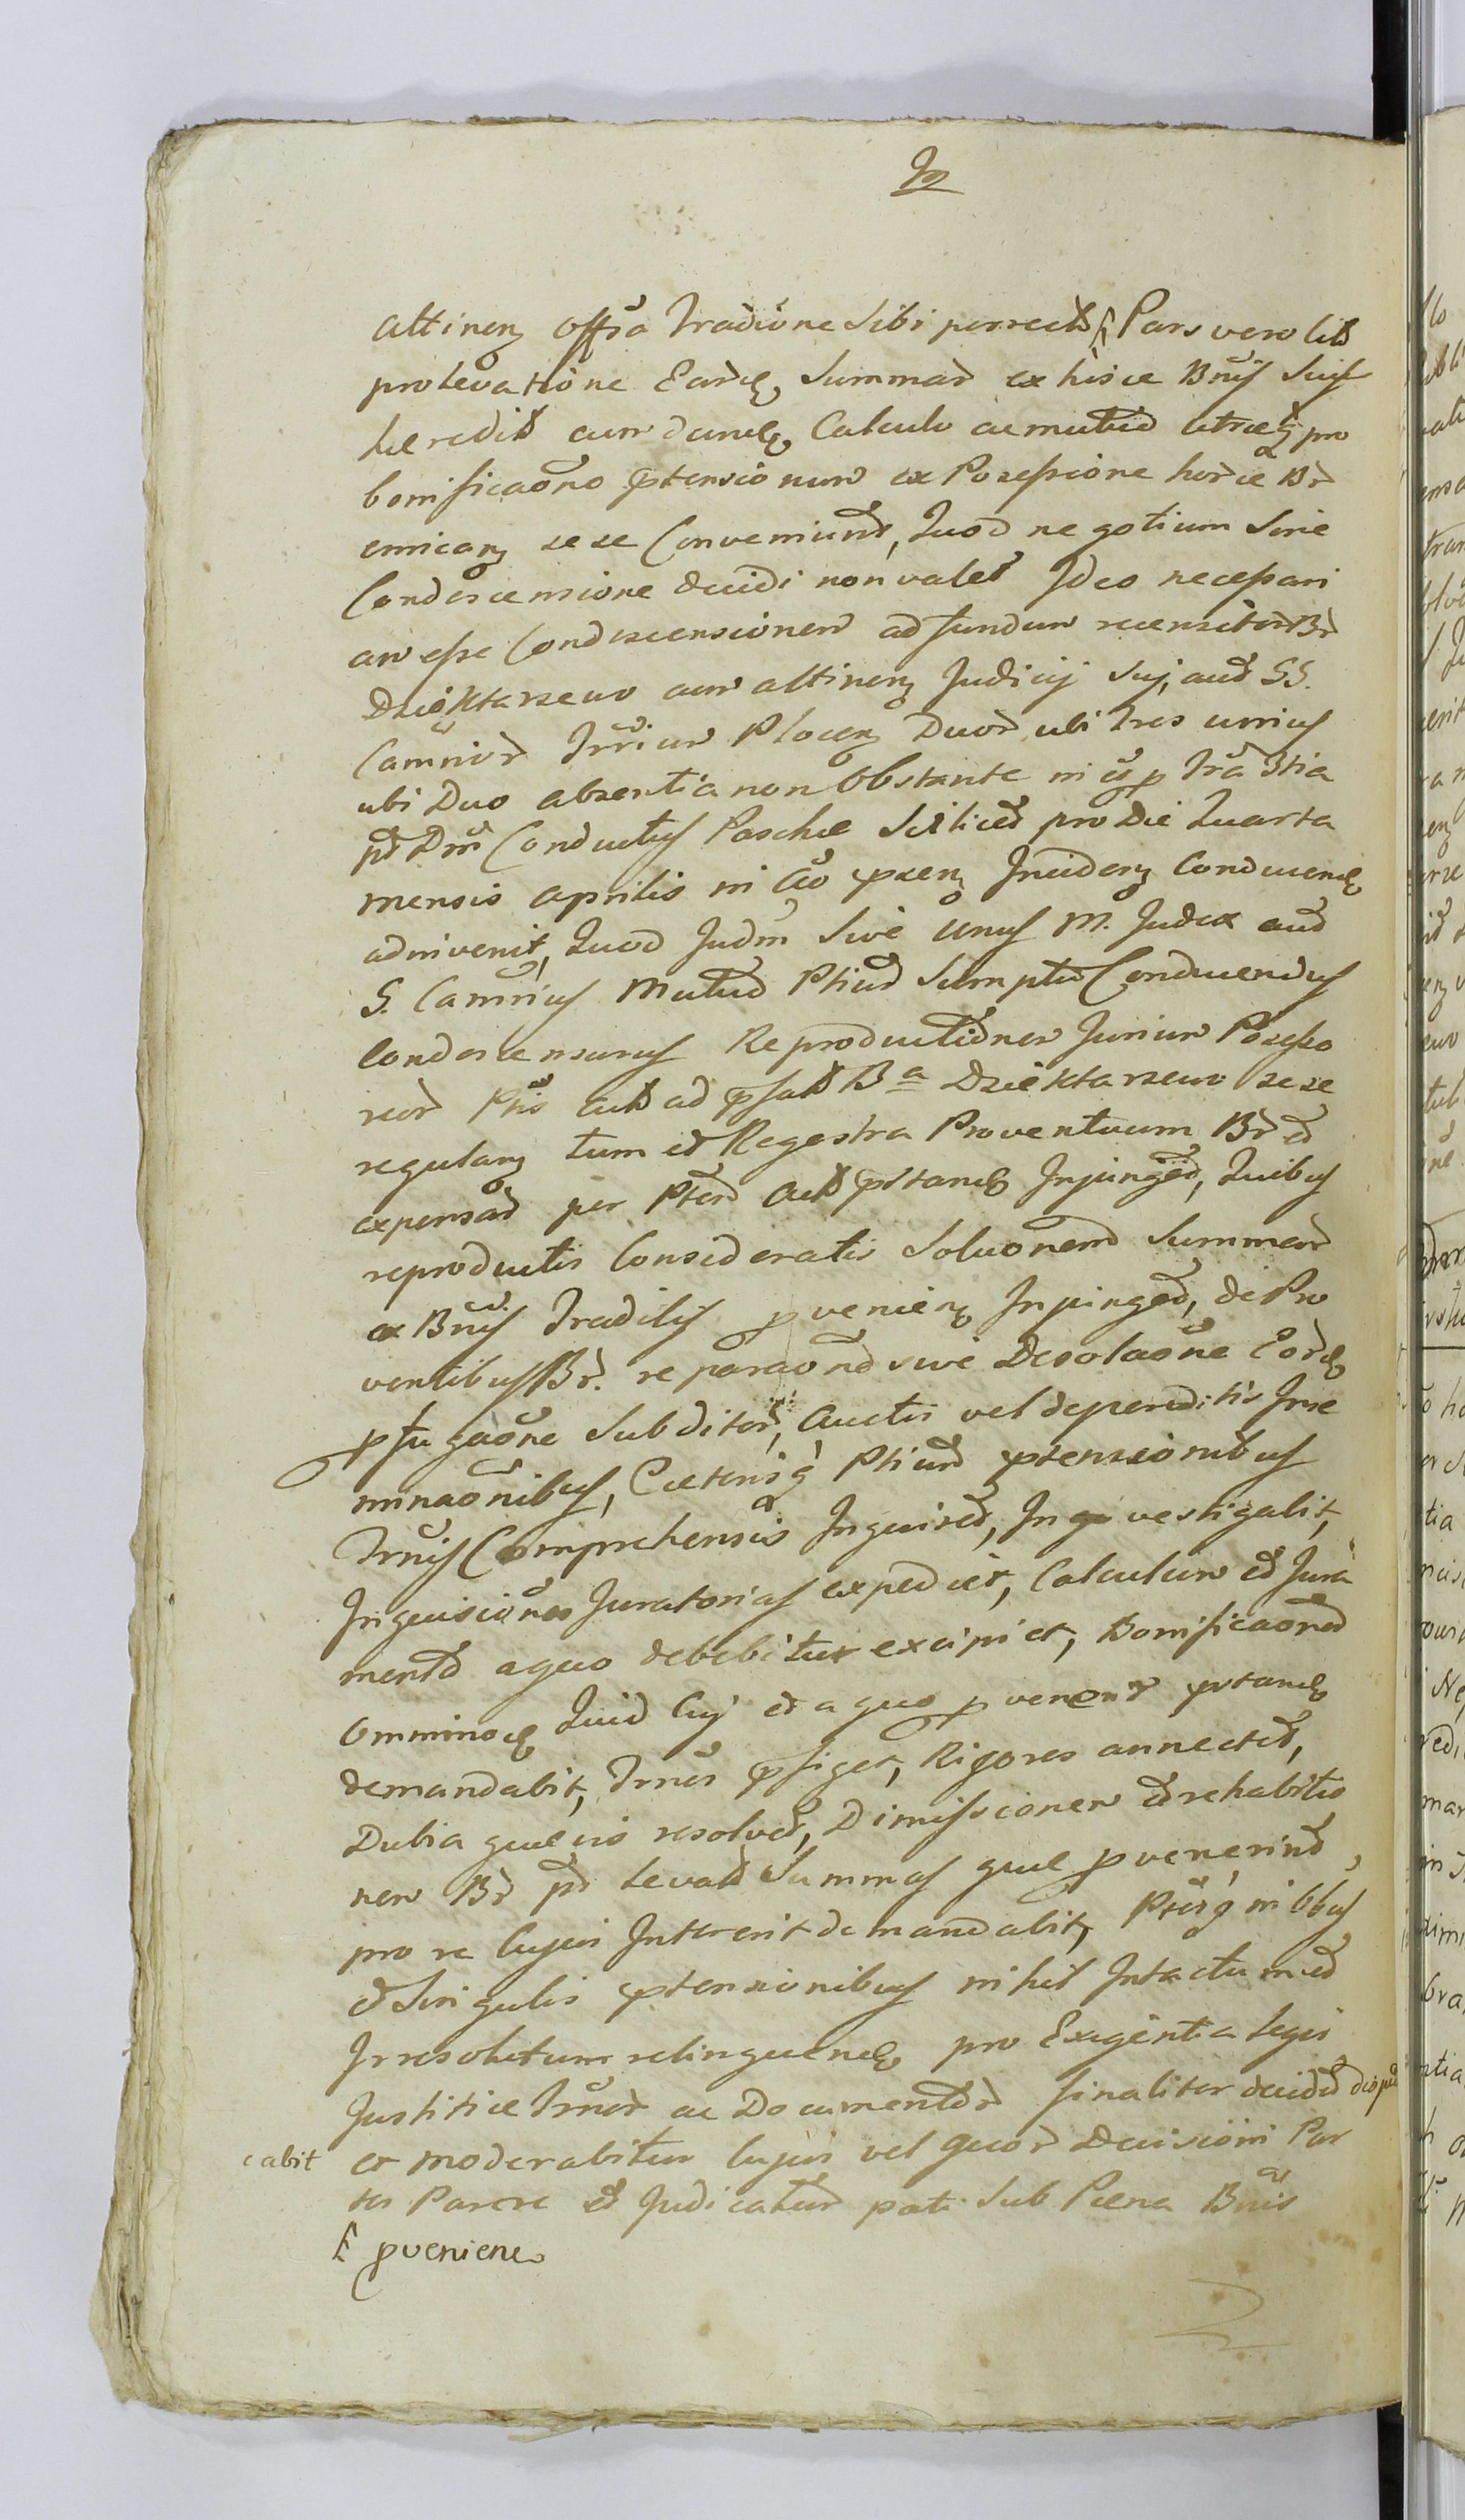 attinen offa Tradione Sibi porrectt Pars vero litt
prolevatione Eard Summar ex hisce Bnis Suis
heredit cum dand Calculo ac mutuo utrinq pro
bonificaone ptensionum ex Possessione horce Br
emican sese Conveniunt, Quod negotium Sine
Condescensione decidi non valet Ideo necessari
am esse Condescensionem ad fundum recensitor Br
Dziektarzewo cum attinen Judicij Sui, aut SS.
Camrior Trrium Plocen Duor ubi Tres unius
ubi Duo absentia non Obstante in
pt Conductus Paschae Scilicet pro Die Quarta
mensis Aprilis in Ao psen Inciden Conducend
adinvenit, Quod Judm Sive Unus M. Judex aut
S. Camrius Mutuo Ptium Sumptu Conducendus
Condescensurus Reproductionem Jurium Possesso
rior Ptis Actt ad psatt Ba Dziektarzewo sese
regulan tum et Regestra Proventuum Br et
expensar per Ptem Actt pstand Injunget, Quibus
reproductis Consideratis Soluonem Summar
ex Bnis Traditis pvenien Inpinget, de Pro
ventibus Br. reparaone sive Desolaone Eord
pfugaone Subditor, Auctis vel deperditis Inse
minaonibus, Caeterisq Ptium ptensionibus
Trnis Comprehensis Inquiret, Investigabit,
Inquisiones Juratorias expediet, Calculum et Jura
mento a quo debebitur excipiet, Bonificaonem
Omnimod Quid Cui et a quo pvenerit pstand
demandabit, Trnos psiget, Rigores annectet,
Dubia quaevis resolvet, Dimissionem et rehabitio
nem Br pt levatt Summas quae pvenerint,
pro re Cujus Intererit demandabit, Ptesq in Obus
et Singulis ptensionibus nihil Intactum et
Irresolutum relinquend pro Exigentia legis
Justitiae Trnor ac Documentor finaliter decidet dijudi
cabit et moderabitur Cujus vel quor Decisioni Par
tes Parere et Judicatum pati Sub Paena Bnis
pveniene